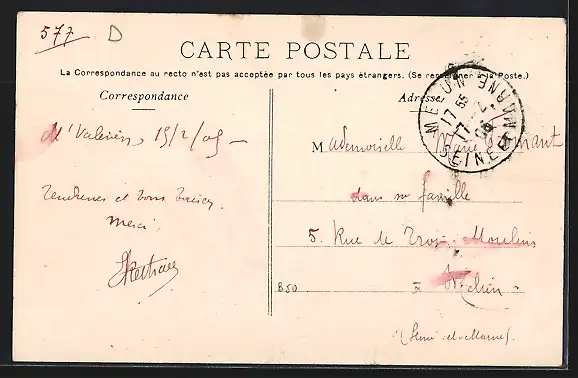 577 D
CARTE POSTALE
La Correspondance au recto n'est pas acceptée par tous les pays étrangers. (Se renseigner à la Poste.)
Correspondance
Adresse
MELUN
SEINE-ET-MARNE
Mt Valérien 15/2/05 -
Tendresses et bons baisers.
Merci.
Mademoiselle Marie
dans sa famille
5. Rue de Trois Moulins
à Melun
(Seine-et-Marne)
B50